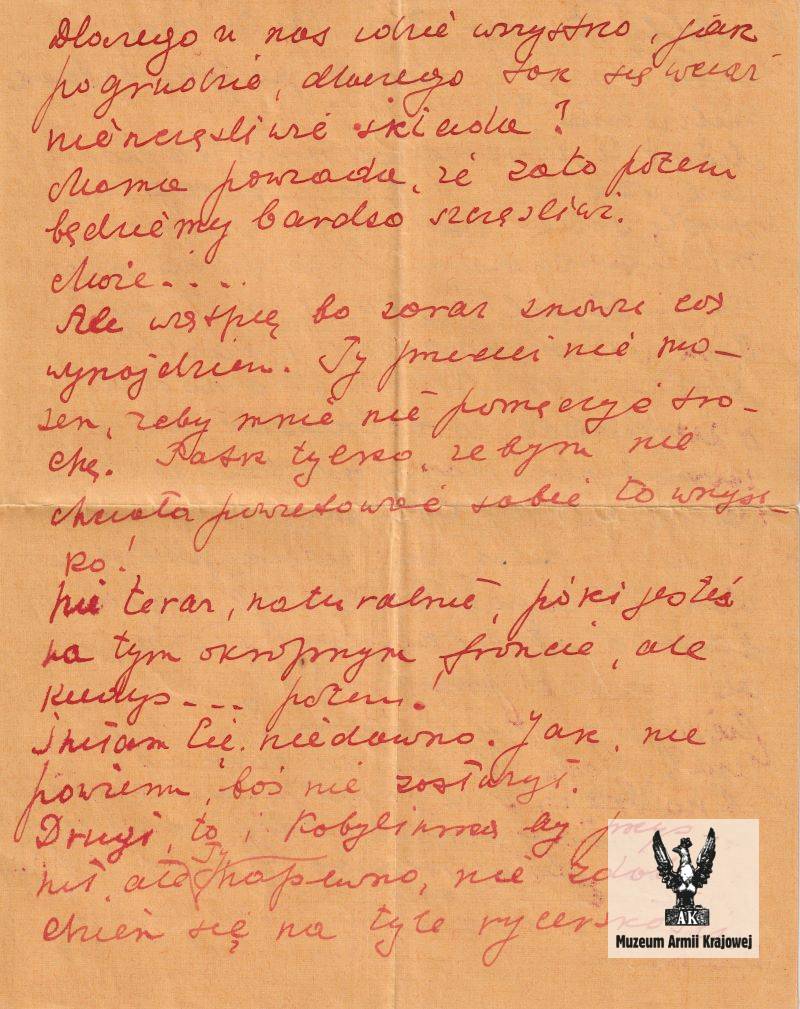 Dlaczego u nas idzie wszystko, jak
po grudzie, dlaczego tak się wciąż
nieszczęśliwie składa?
Mama powiada, że zato potem
będziemy bardzo szczęśliwi.
Może....
Ale wątpię bo zaraz znowu coś
wynajdziesz. Ty przecież nie mo-
żesz, żeby mnie nie pomęczyć tro-
chę. Patrz tylko, żebym nie
chciała powetować sobie to wszyst-
ko!
Nie teraz, naturalnie, póki jesteś
na tym okropnym froncie, ale
kiedyś... potem.
Śniłam Cię niedawno. Jak, nie
powiem, boś nie zasłużył.
Drugi, to i Kobylińską by
niż, ale Ty napewno, nie
dziesz się na tyle
AK
Muzeum Armii Krajowej